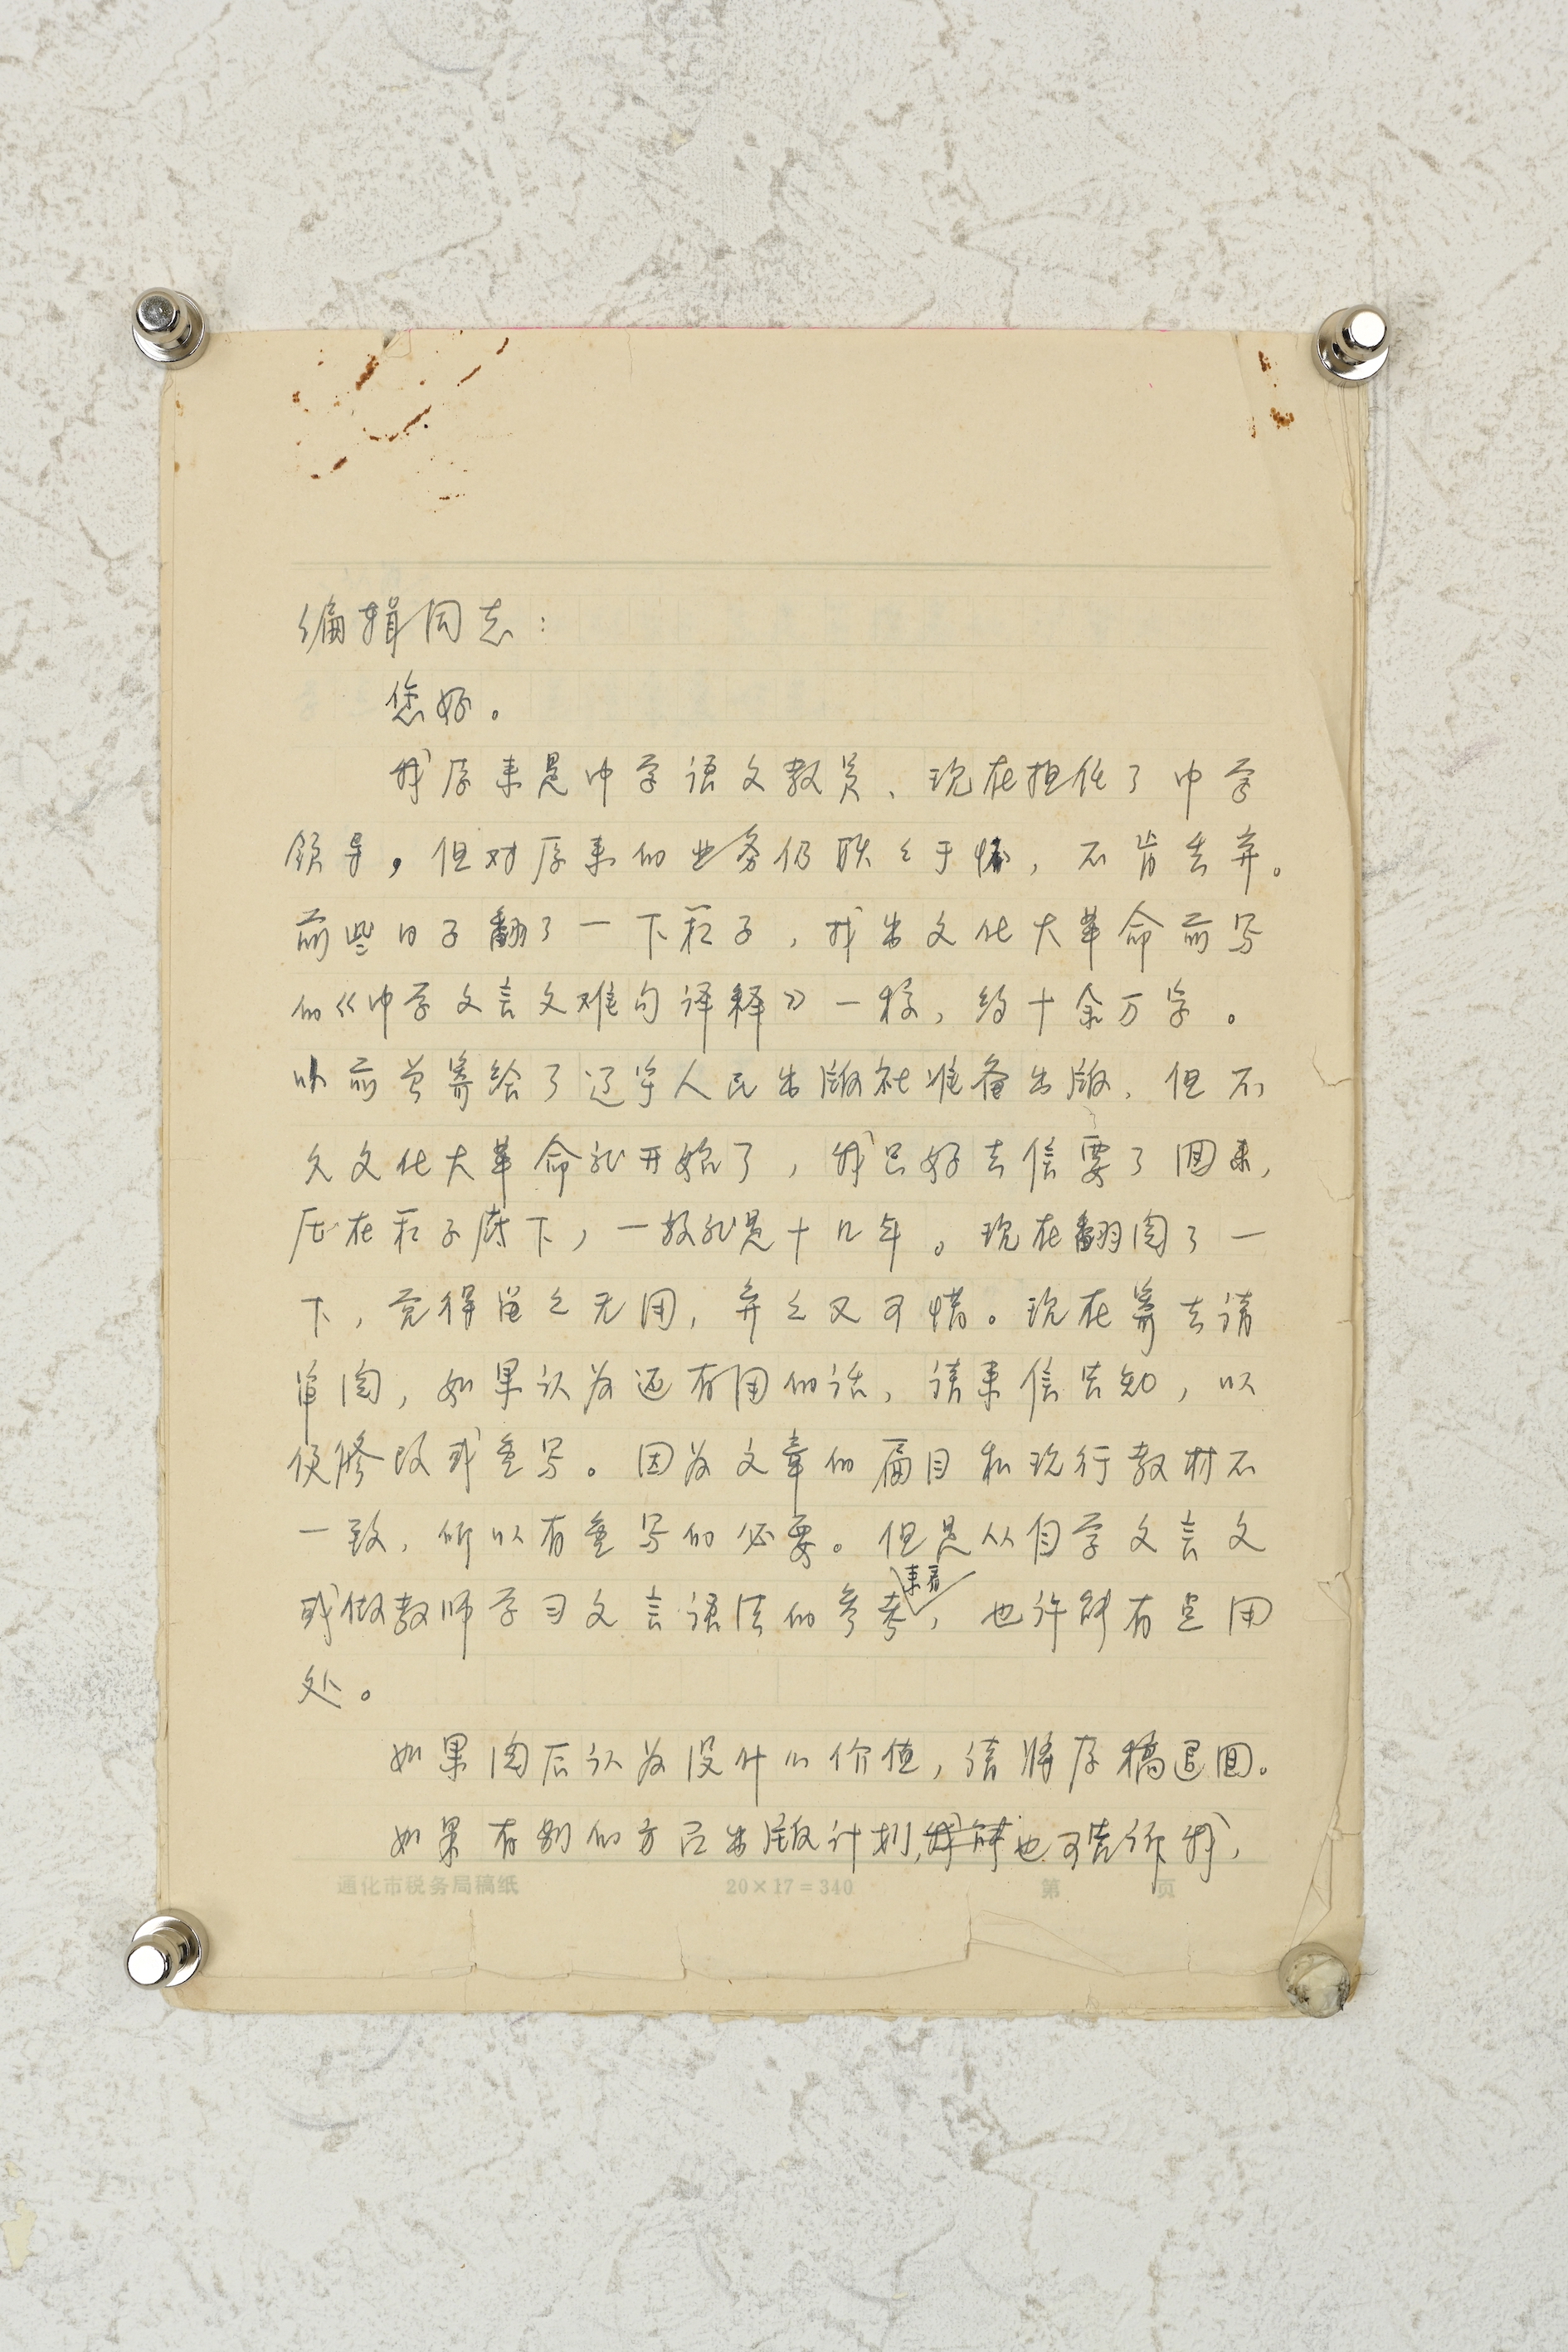 编辑同志：
您好。
我原来是中学语文教员、现在担任了中学
领导，但对原来的业务仍耿々于怀，不肯丢弃。
前些日子翻了一下箱子，找出文化大革命前写
的《中学文言文难句译释》一稿，约十余万字。
以前曾寄给了辽宁人民出版社准备出版，但不
久文化大革命就开始了，我只好去信要了回来，
压在箱子底下，一放就是十几年。现在翻阅了一
下，觉得留之无用，弃之又可惜。现在寄去请
审阅，如果认为还有用的话，请来信告知，以
便修改或重写。因为文章的篇目和现行教材不
一致，所以有重写的必要。但是从自学文言文
或做教师学习文言语法的参考来看，也许能有点用
处。
如果阅后认为没什么价值，请将原稿退回。
如果有别的方面出版计划，我能也可告诉我，
通化市税务局稿纸 20×17＝340 第 页